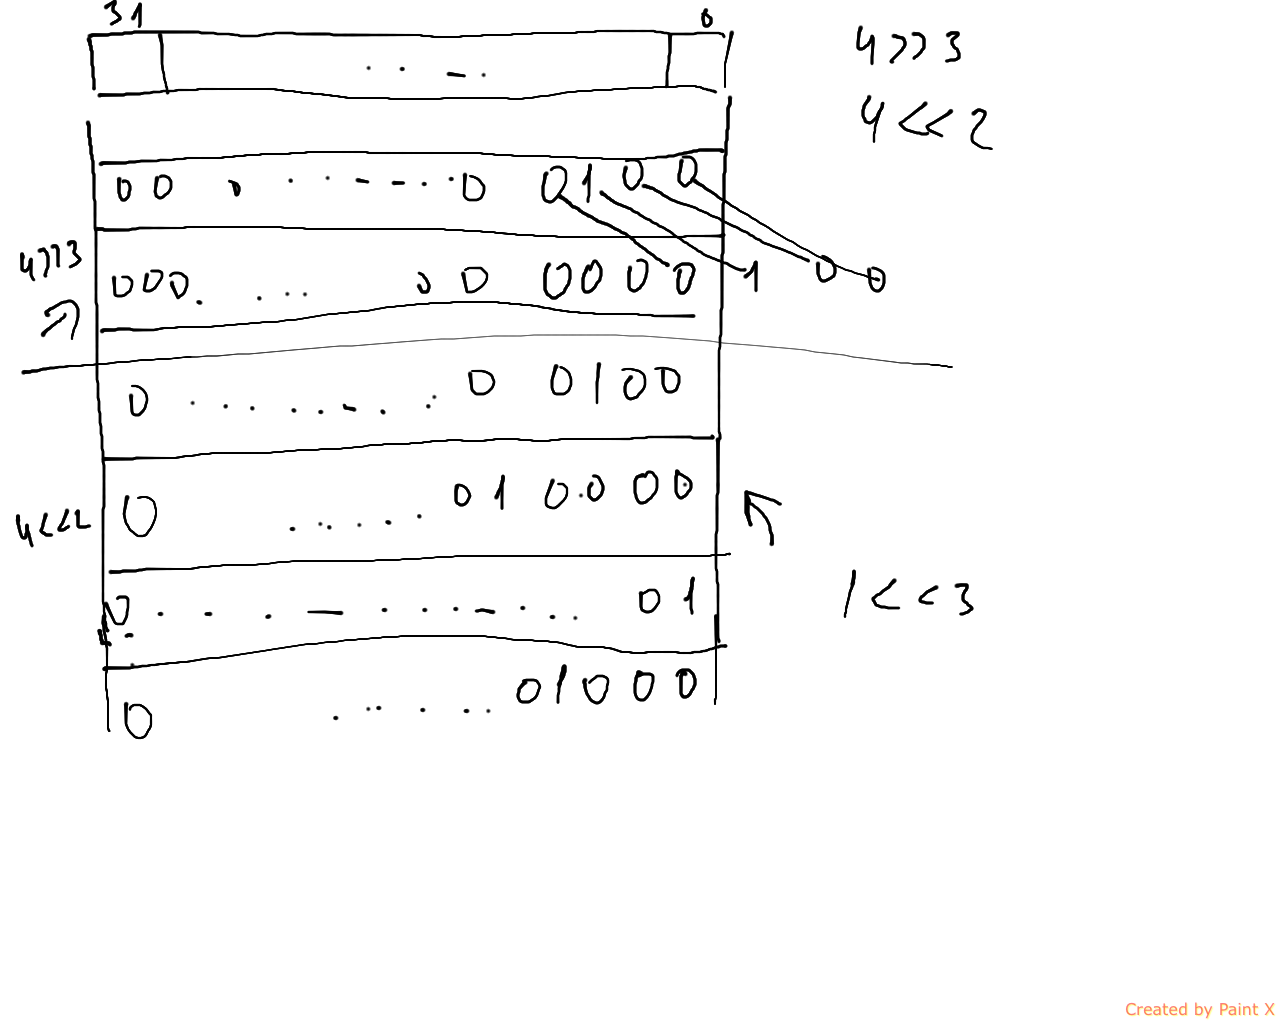 31 0
4>>3
4<<2
00 0 . . - - - . . 0 0100
4>>3 000. . . . 00 0000 1 0 0
0 . . . . . - . . 0 0100
4<<2 0 . . . . . 01 0000
0 . . . — . . . - . . . 01
1<<3
0 . . . . . . 01000
Created by Paint X